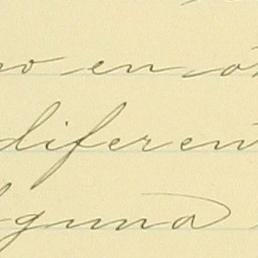 en
diferen
guna